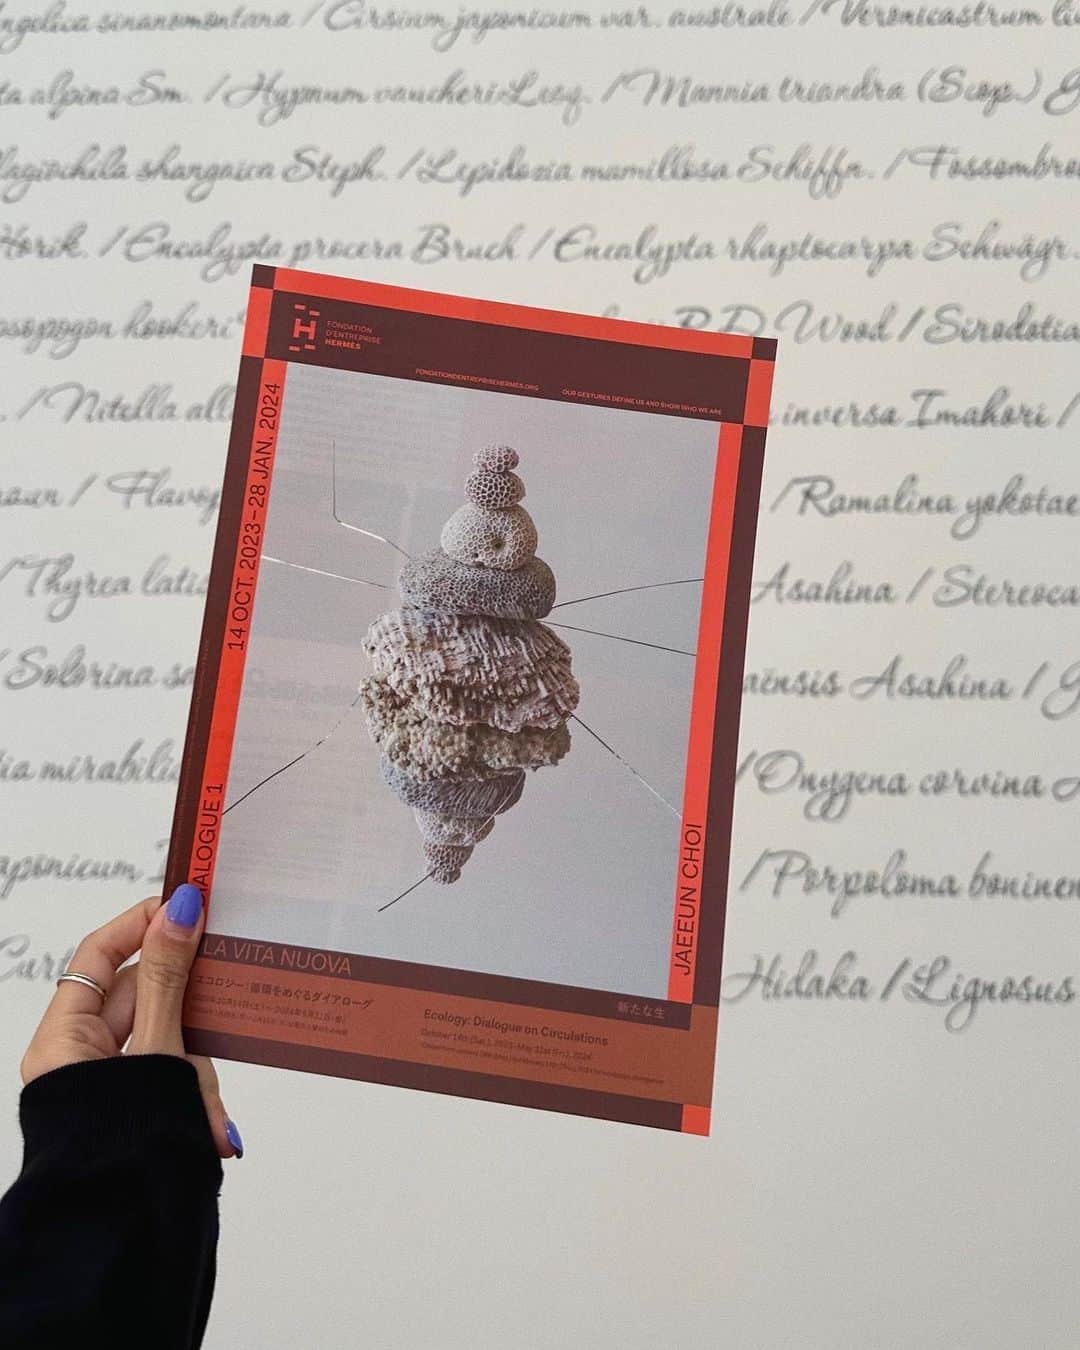 ngelica sinanomontana / Cirsium japonicum var. australe / Veronicastrum
ta alpina Sm. / Hypnum vaucheri Lesq. / Mannia triandra (Scop.)
lagiochila shangaica Steph. / Lepidozia mamillosa Schiffn. / Fossombro
Horik. / Encalypta procera Bruch / Encalypta rhaptocarpa Schwägr.
sopogon hookeri R.D. Wood / Sirodotia
. / Nitella all inversa Imahori /
/ Flavop / Ramalina yokotae
/ Thyrea latis Asahina / Stereoca
/ Solorina sa aënsis Asahina / G
ia mirabilis / Onygena corvina A
aponicum / Porpoloma boninen
Curt Hidaka / Lignosus
FONDATION
D'ENTREPRISE
HERMÈS
FONDATIONDENTREPRISEHERMES.ORG
OUR GESTURES DEFINE US AND SHOW WHO WE ARE
14 OCT. 2023–28 JAN. 2024
DIALOGUE 1
JAEEUN CHOI
LA VITA NUOVA
新たな生
エコロジー：循環をめぐるダイアローグ
2023年10月14日(土)～2024年5月31日(金)
Ecology: Dialogue on Circulations
October 14th (Sat.), 2023–May 31st (Fri.), 2024